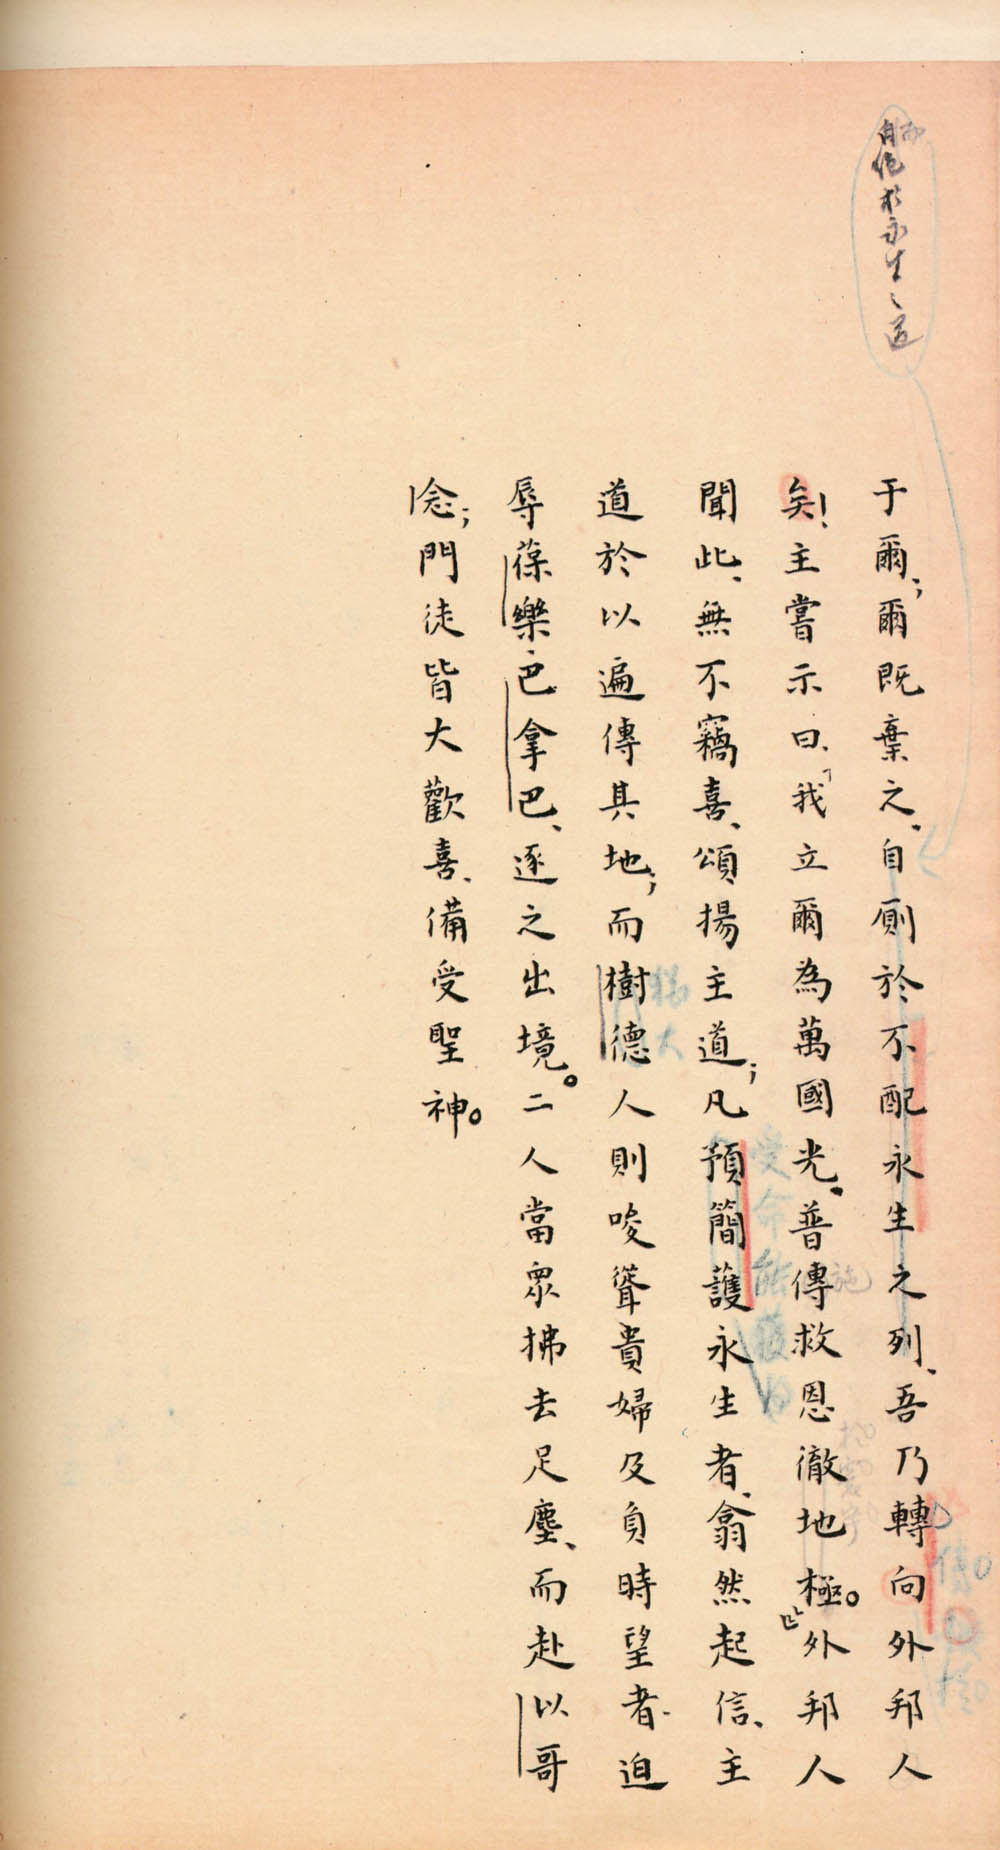 而自絕於永生之道
于爾；爾既棄之、自廁於不配永生之列、吾乃轉向外邦人
矣！主嘗示曰、「我立爾為萬國光、普傳救恩徹地極。」外邦人
施
聞此、無不竊喜、頌揚主道；凡預簡護永生者、翕然起信、主
受命能獲
道於以遍傳其地；而樹德人則唆聳貴婦及負時望者、迫
猶大
辱葆樂、巴拿巴、逐之出境。二人當眾拂去足塵、而赴以哥
念；門徒皆大歡喜、備受聖神。